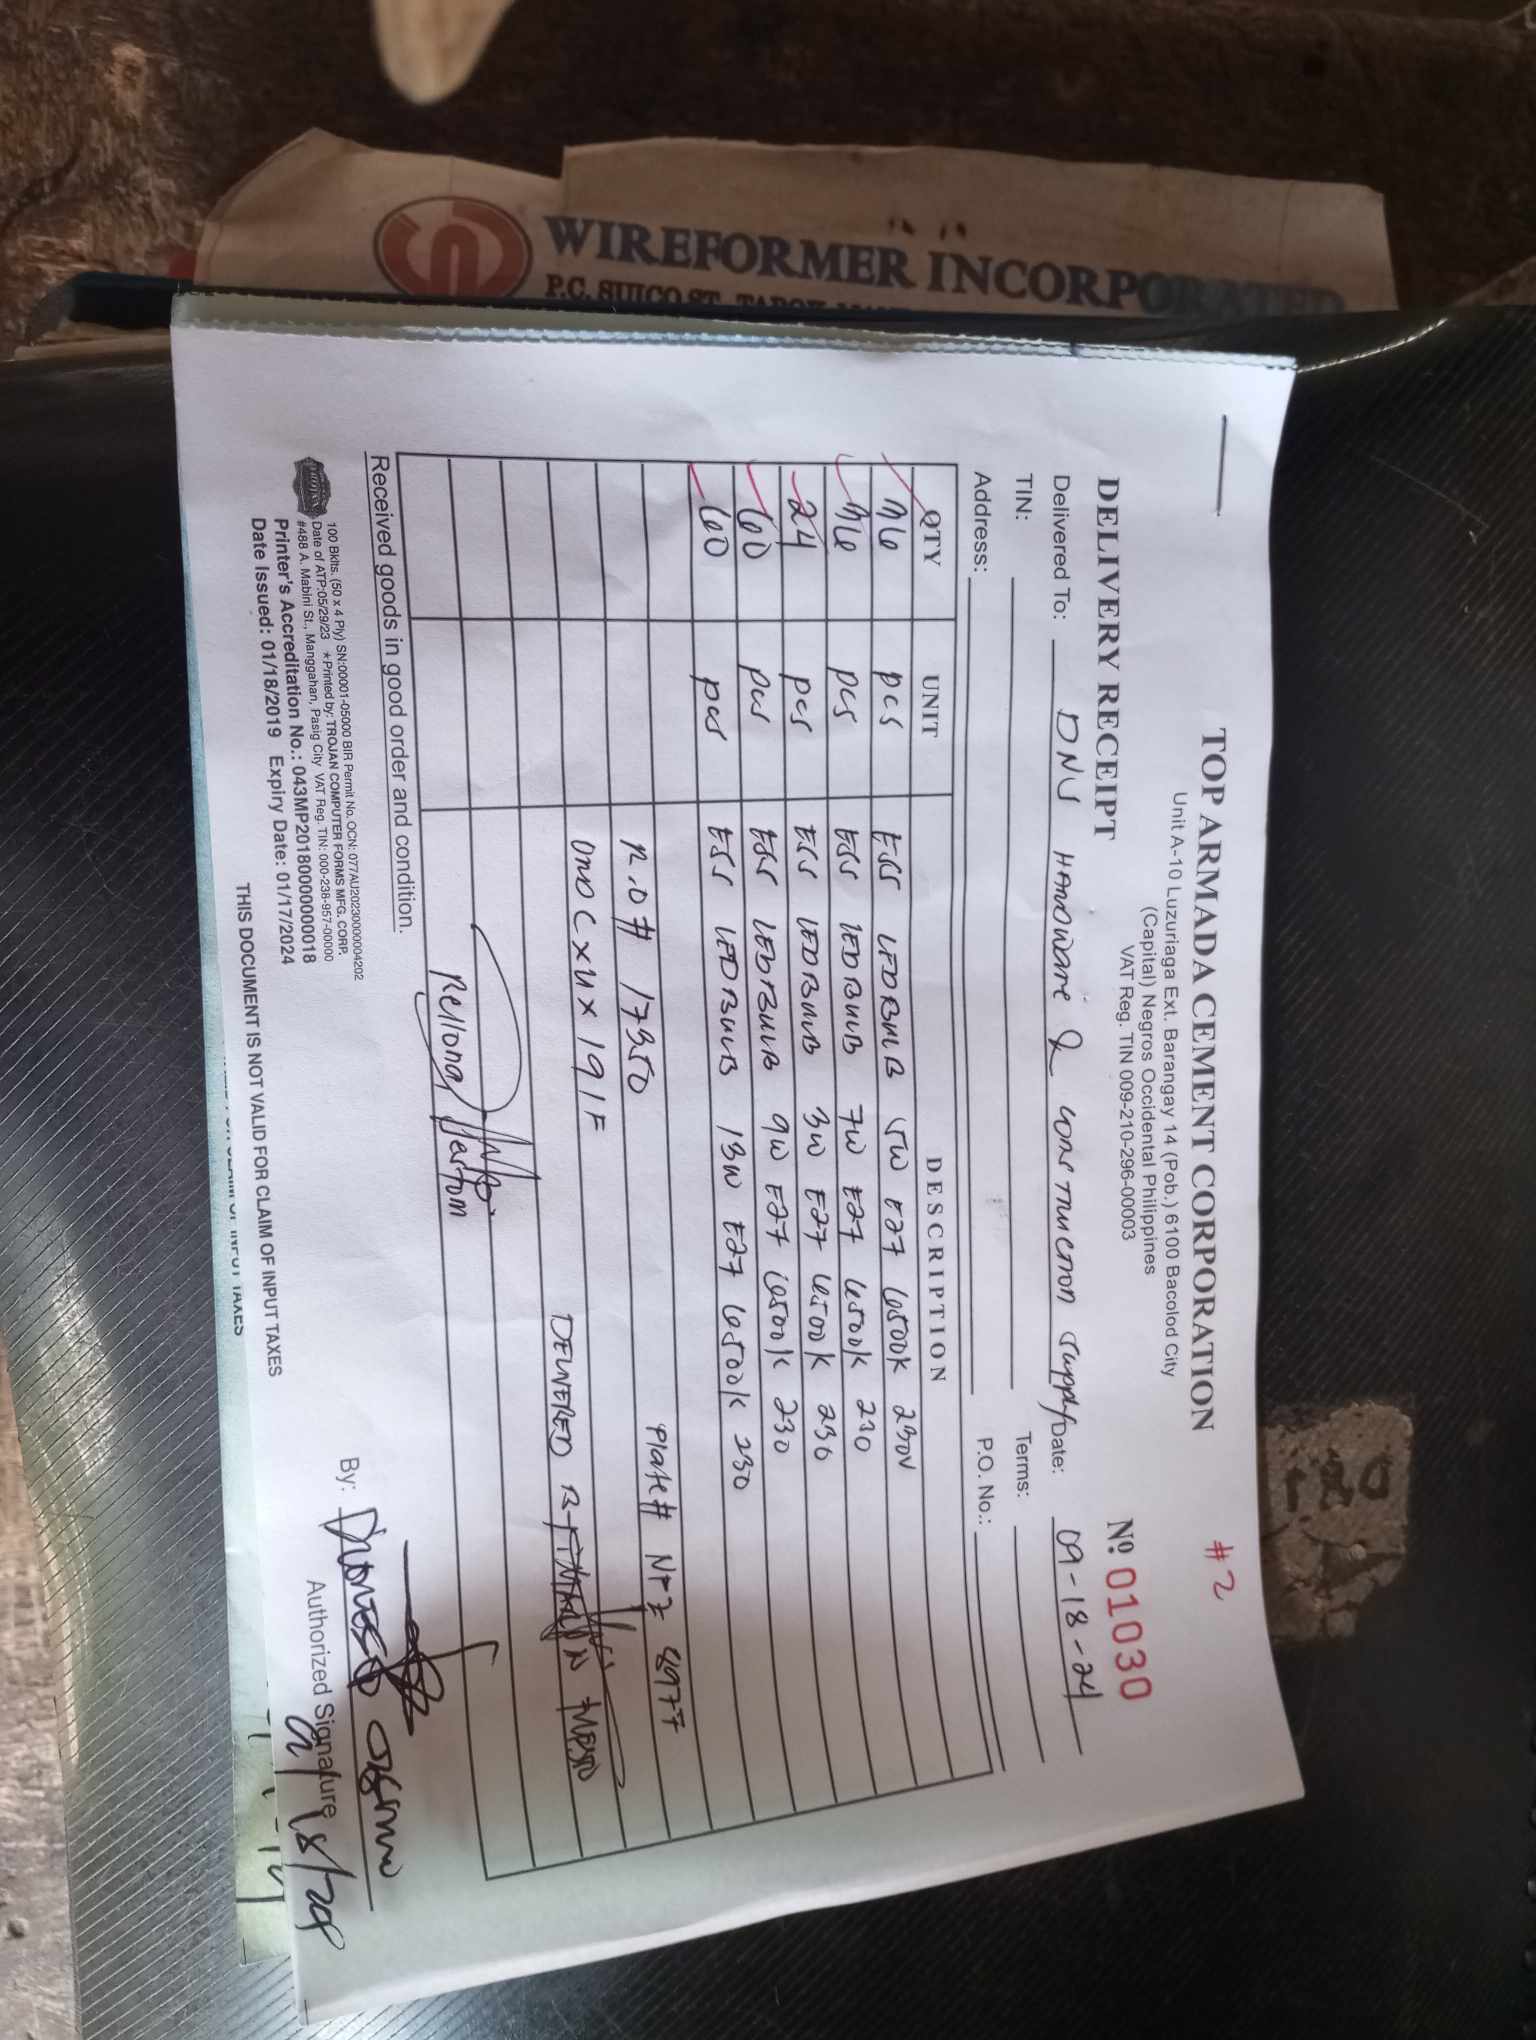 WIREFORMER INCORPORATED
P.C. SUICO ST.
#2
TOP ARMADA CEMENT CORPORATION
Unit A-10 Luzuriaga Ext. Barangay 14 (Pob.) 6100 Bacolod City
(Capital) Negros Occidental Philippines
VAT Reg. TIN 009-210-296-00003
DELIVERY RECEIPT Nº 01030
Delivered To: DNU HARDWARE & CONSTRUCTION Supply Date: 09-18-24
TIN: Terms:
Address: P.O. No.:
QTY UNIT DESCRIPTION
36 pcs ESS LEDBULB 5W E27 6500K 230V
36 pcs ESS LEDBULB 7W E27 6500K 230
24 pcs ESS LEDBULB 3W E27 6500K 230
60 pcs ESS LEDBULB 9W E27 6500K 230
60 pcs ESS LEDBULB 13W E27 6500K 230
Plate# 8977
P.O# 17350
DELIVERED
Rellong
Received goods in good order and condition.
By:
Authorized Signature
100 Bklts. (50 x 4 Ply) SN:00001-05000 BIR Permit No. OCN: 077AU20230000004202
Date of ATP:05/29/23 *Printed by: TROJAN COMPUTER FORMS MFG. CORP.
#488 A. Mabini St., Manggahan, Pasig City VAT Reg. TIN: 000-238-957-00000
Printer's Accreditation No.: 043MP20180000000018
Date Issued: 01/18/2019 Expiry Date: 01/17/2024
THIS DOCUMENT IS NOT VALID FOR CLAIM OF INPUT TAXES